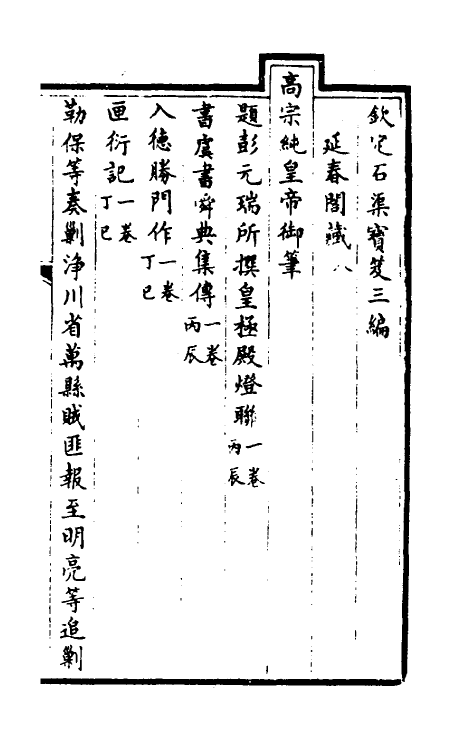 欽定石渠寶笈三編
延春閣藏八
高宗純皇帝御筆
題彭元瑞所撰皇極殿燈聯一卷丙辰
書虞書舜典集傳一卷丙辰
入德勝門作一卷丁巳
匣衍記一卷丁巳
勒保等奏剿淨川省萬縣賊匪報至明亮等追剿